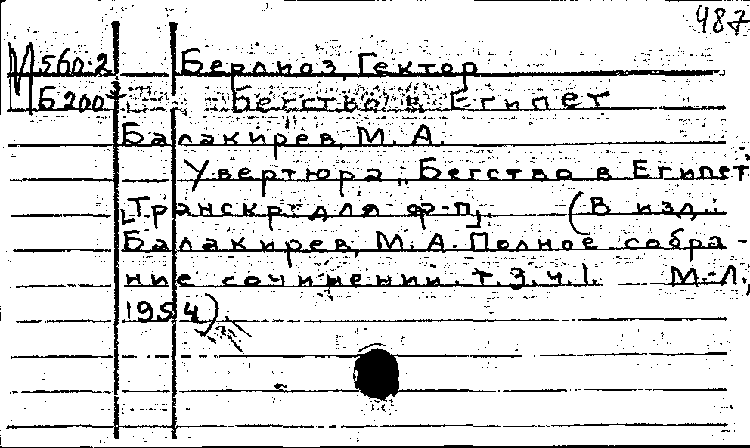 487
М560.2 Берлиоз, Гектор
Б200³ Бегство в Египет
Балакирев, М. А.
Увертюра „Бегство в Египет"
[Транскр. для ф-п]. (В изд.:
Балакирев, М. А. Полное собра-
ние сочинений. т. 3. ч. I. М.-Л.,
1954).